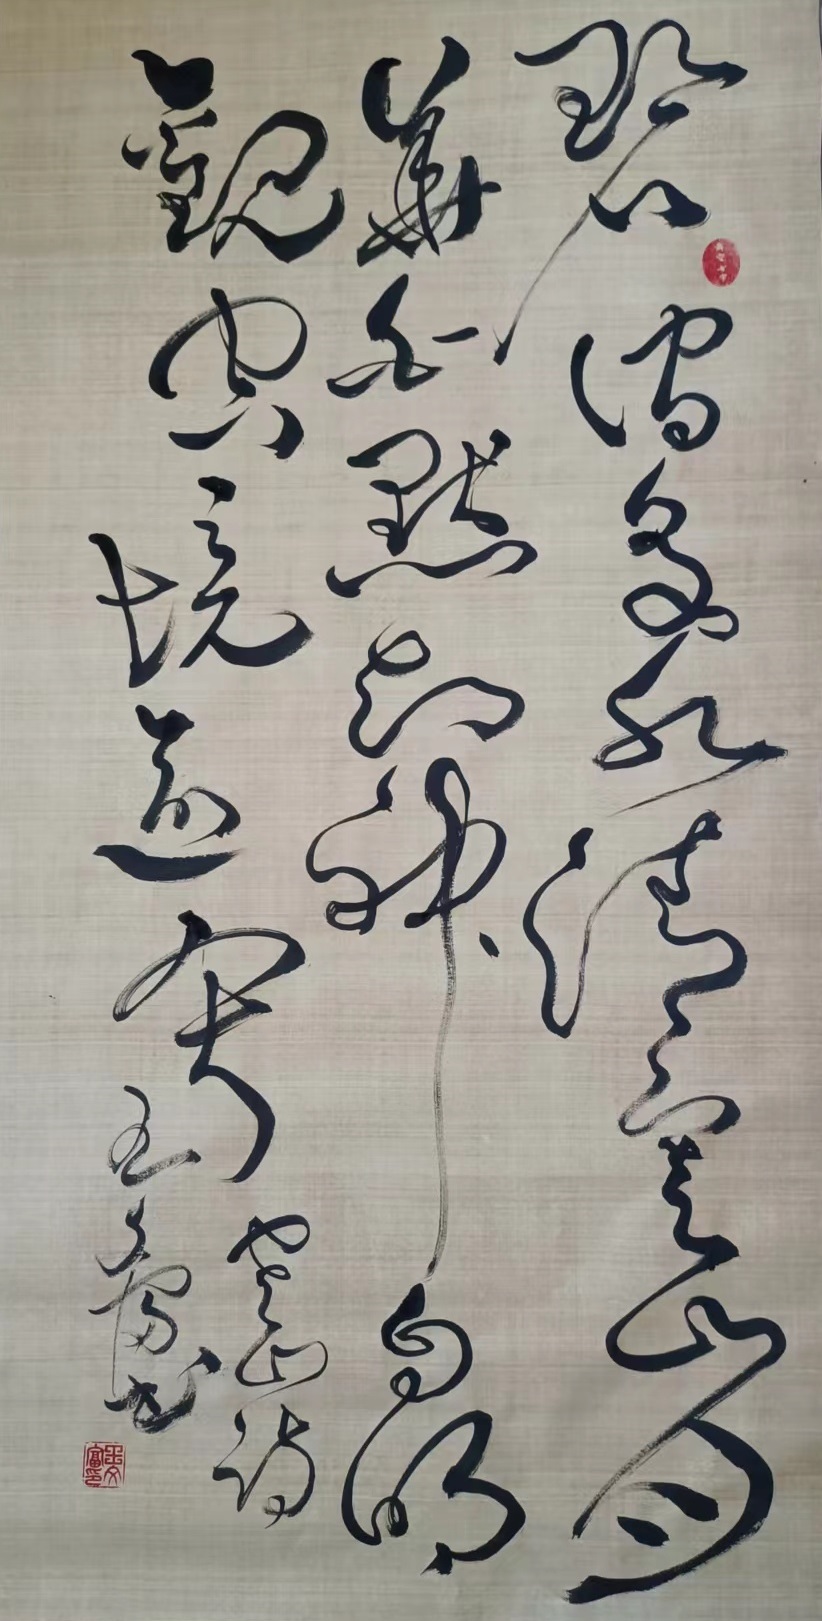 碧澗泉水清寒山月
華白默知神自明
觀空境逾寂
寒山詩
王文富書